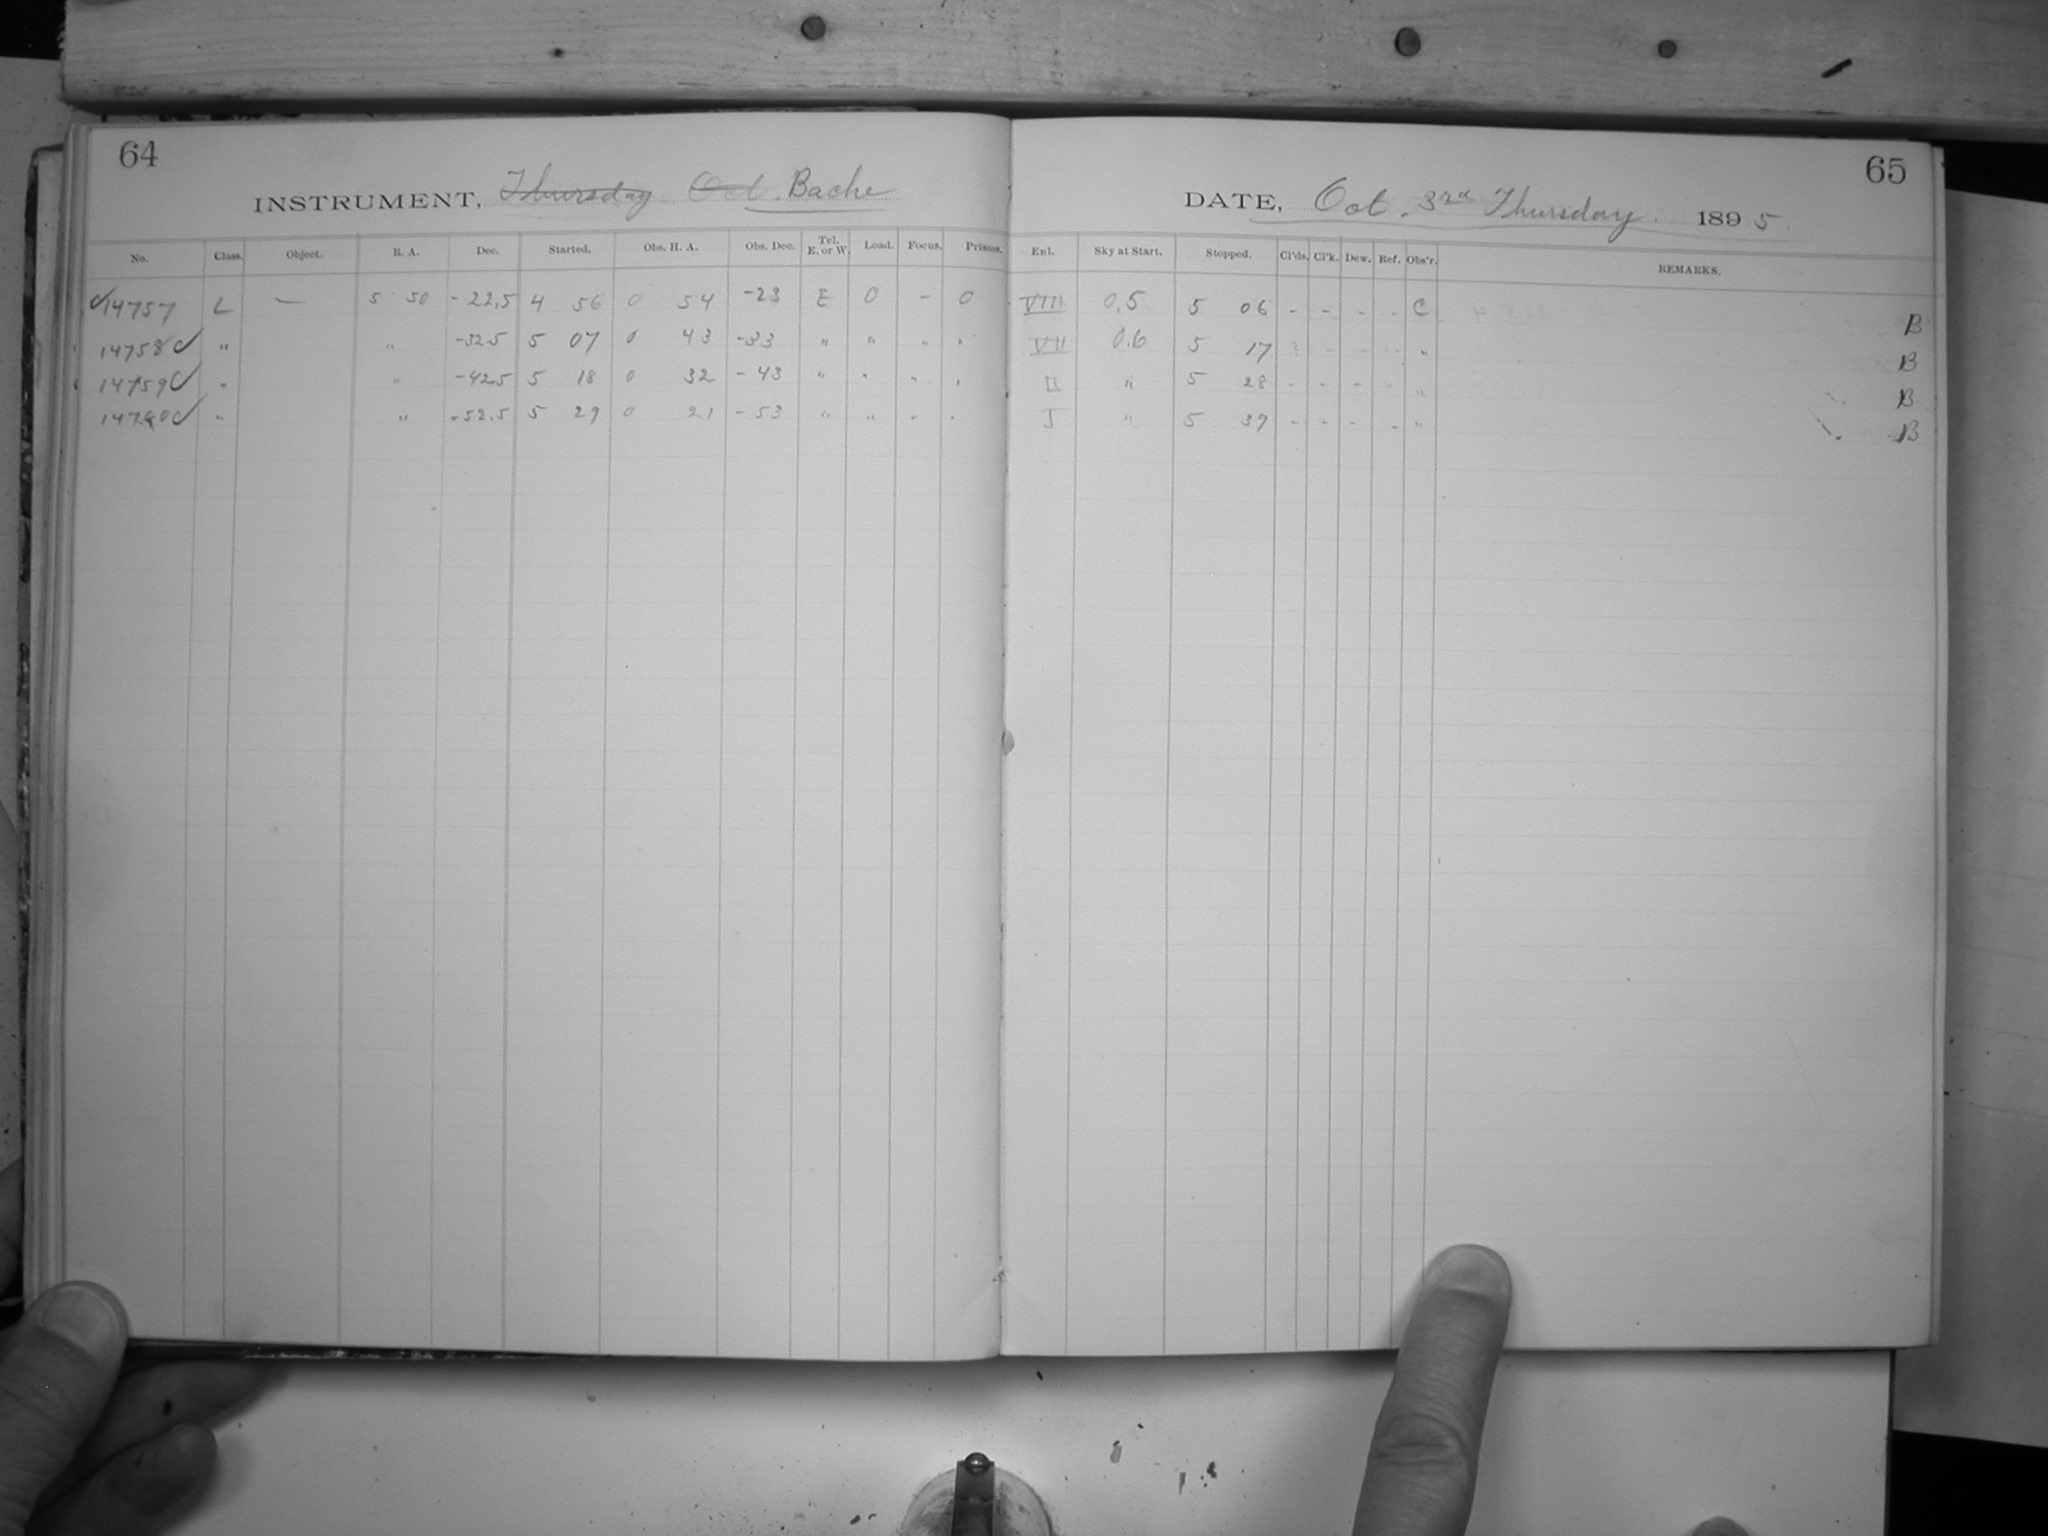 64
INSTRUMENT, Thursday Oct. Bache
No. Class. Object. R. A. Dec. Started. Obs. H. A. Obs. Dec. Tel. E. or W. Load. Focus. Prisms.
14757 L — 5 50 -22.5 4 56 0 54 -23 E 0 - 0
14758 " " -32.5 5 07 0 43 -33 " " " "
14759 " " -42.5 5 18 0 32 -43 " " " "
14760 " " -52.5 5 29 0 21 -53 " " " "
65
DATE, Oct. 3rd Thursday. 1895.
Enl. Sky at Start. Stopped. Cl'ds. Cl'k. Dew. Ref. Obs'r. REMARKS.
VIII 0.5 5 06 - - - - C B
VII 0.6 5 17 - - - " B
II " 5 28 - - - - " B
I " 5 39 - - - - " B